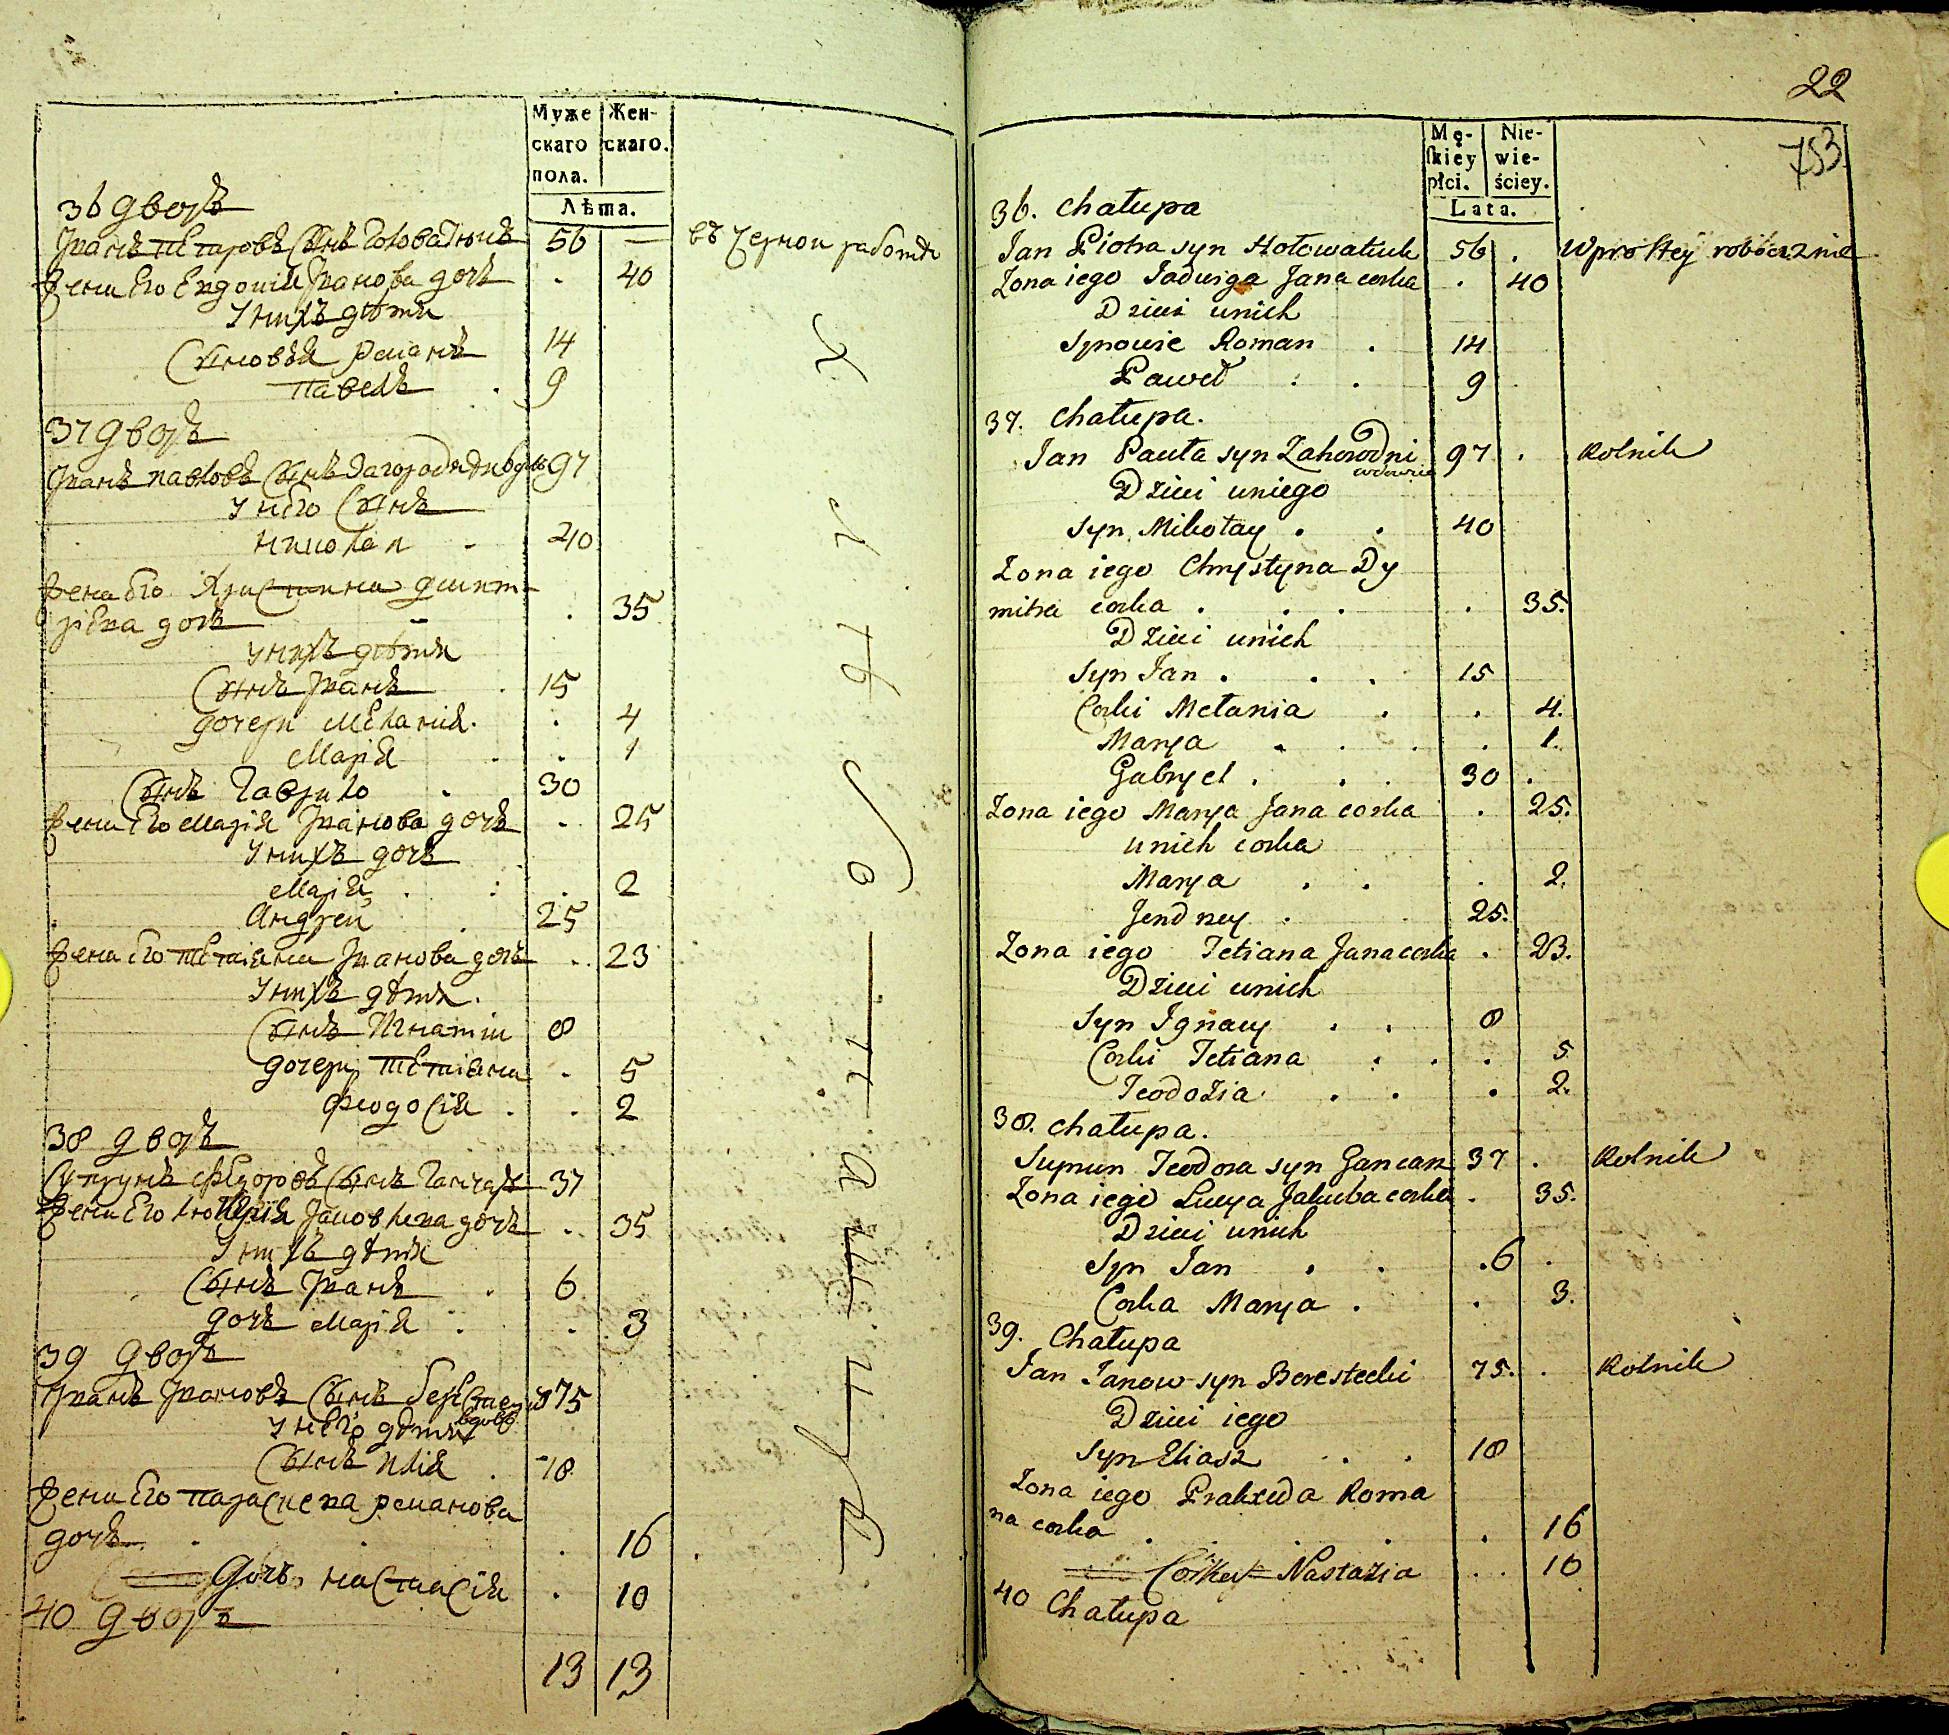 Муже
скаго
пола.
Жен-
скаго.
Лѣта.
36 дворъ
Иванъ Петровъ сынъ Головатюкъ 56 — въ черной работѣ
Жена Его Евдокия Иванова дочь . 40
У нихъ дѣти
Сыновья Романъ 14
Павелъ . 9
37 дворъ
Иванъ Павловъ сынъ Загородни вдовъ 97
У него сынъ
Николай - 40
Жена Его Христина Дмит-
рiева дочь . 35
У нихъ дѣти
Сынъ Иванъ . 15
дочери Меланiя . . 4
Марiя . . 1
Сынъ Гаврило . 30
Жена Его Марiя Иванова дочь . 25
У нихъ дочь
Марiя . : . 2
Андрей . 25
Жена Его Тетiяна Иванова дочь . 23
У нихъ дѣти.
Сынъ Игнатiй 8
дочери Тетiяна . 5
Феодосiя . . 2
38 дворъ
Супрунъ Федоровъ сынъ Ганчаръ 37
Жена Его Лю Яковлева дочь . 35
У нихъ дѣти
Сынъ Иванъ . 6
дочь Марiя . . 3
39 дворъ
Иванъ Ивановъ сынъ 75
У него дѣти вдовъ
Сынъ Илiя . 18
Жена Его Параскева Романова
дочь . . . 16
Дочь Настасiя . 10
40 дворъ
13 13
22
753
Mę-
ſkiey
płci.
Nie-
wie-
ściey.
Lata.
36. Chałupa
Jan Piotra syn Hołowatiuk 56 . W prostey robociznie
Zona iego Jadwiga Jana corka . 40
Dzieci unich
Synowie Roman . 14
Paweł : . 9
37. Chałupa.
Jan Pauła syn Zahorodni 97 . Rolnik
wdowiec
Dzieci uniego
Syn Mikołay . . 40
Zona iego Chrystyna Dy
mitra corka . . . . 35.
Dzieci unich
Syn Jan . . . 15
Corki Mełania . . 4.
Marya . . . . 1.
Gabryel . . . 30 .
Zona iego Marya Jana corka . 25.
unich corka
Marya . . . 2.
Jendrzey . 25.
Zona iego Tetiana Jana corka . 23.
Dzieci unich
Syn Ignacy . . 8
Corki Tetiana . . . 5
Teodozia . . . 2.
38. Chałupa.
Suprun Teodora syn Gancarz 37 . Rolnik
Zona iego Lucya Jakuba corka . 35.
Dzieci unich
Syn Jan . . . 6 .
Corka Marya . . 3.
39. Chałupa
Jan Janow syn Berestecki 75. . Rolnik
Dzieci iego
Syn Eliasz . . 18
Zona iego Praxeda Roma
na corka . . . . 16
Corka Nastazia . . 10
40 Chałupa